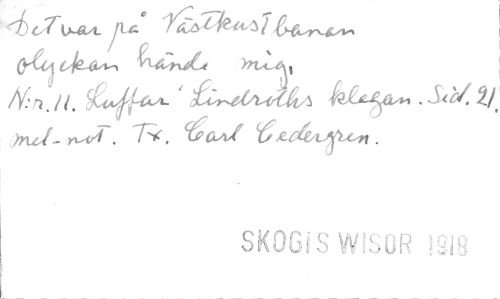 Det var på Västkustbanan
olyckan hände mig,
N:r. 11. Luffar' Lindroths klagan. Sid. 21.
mel-not. Tx. Carl Cedergren.
SKOGIS WISOR 1918